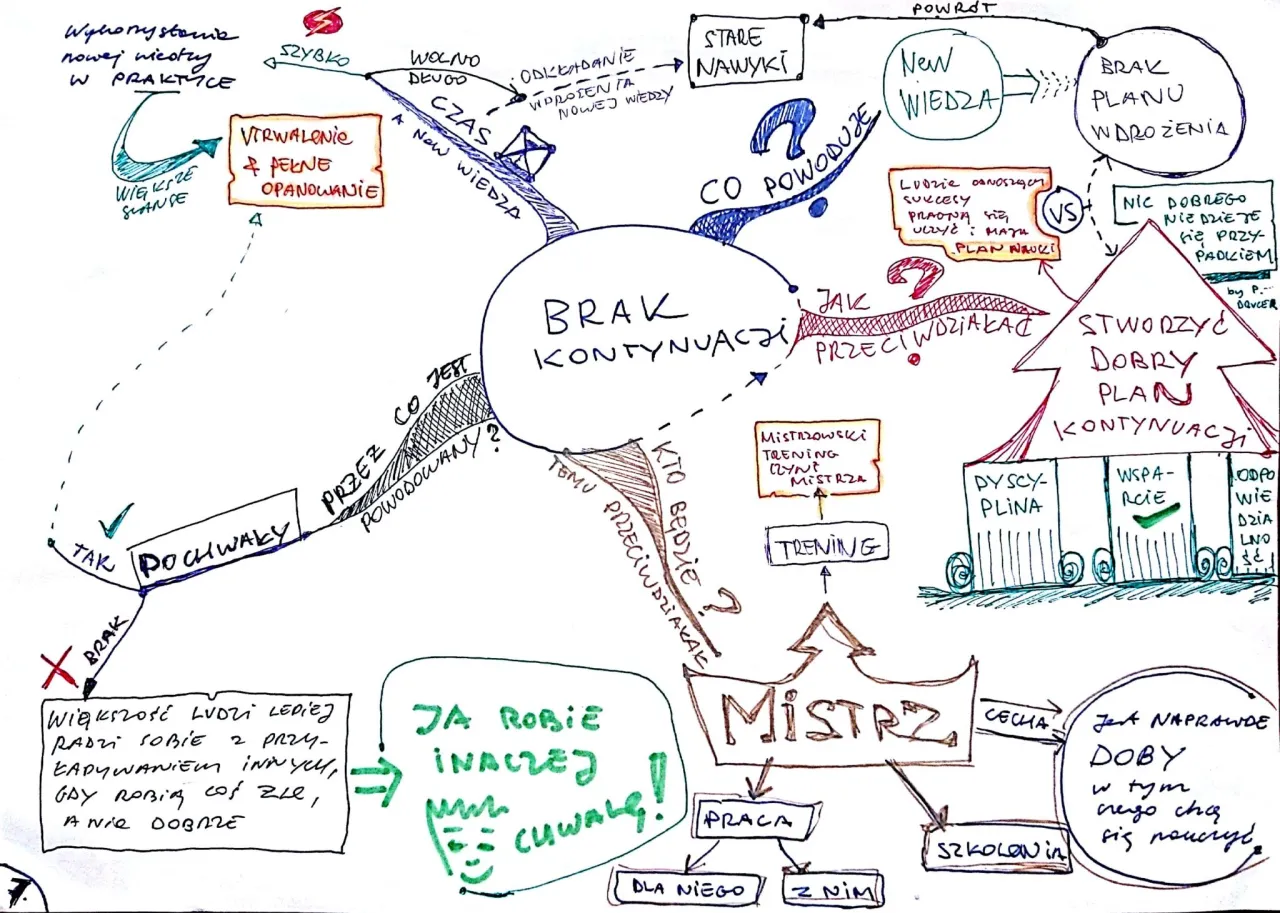 Wykorzystanie
nowej wiedzy
w PRAKTYCE
SZYBKO
WIĘKSZE
SZANSE
UTRWALENIE
& PEŁNE
OPANOWANIE
WOLNO
DŁUGO
ODKŁADANIE
WDROŻENIA
NOWEJ WIEDZY
CZAS
A NEW WIEDZA
STARE
NAWYKI
POWRÓT
NEW
WIEDZA
BRAK
PLANU
WDROŻENIA
CO POWODUJE
?
LUDZIE ODNOSZĄCY
SUKCESY
PRAGNĄ SIĘ
UCZYĆ i MAJĄ
PLAN NAUKI
VS
NIC DOBREGO
NIE DZIEJE
SIĘ PRZY-
PADKIEM
by P.
DRUCER
BRAK
KONTYNUACJI
JAK
PRZECIWDZIAŁAĆ
?
STWORZYĆ
DOBRY
PLAN
KONTYNUACJI
DYSCY-
PLINA
WSPA-
RCIE
ODPO
WIE
DZIA
LNO
ŚĆ
PRZEZ CO JEST
POWODOWANY?
POCHWAŁY
TAK
BRAK
WIĘKSZOŚĆ LUDZI LEPIEJ
RADZI SOBIE Z PRZY-
ŁADYWANIEM INNYCH,
GDY ROBIĄ COŚ ŹLE,
A NIE DOBRZE
JA ROBIE
INACZEJ
CHWALĘ!
KTO BĘDZIE
TEMU PRZECIWDZIAŁAĆ
?
MISTRZOWSKI
TRENING
CZYNI
MISTRZA
TRENING
MISTRZ
CECHA
JEST NAPRAWDE
DOBY
w tym
czego chcą
się nauczyć
PRACA
DLA NIEGO
Z NIM
SZKOLENIA
7.